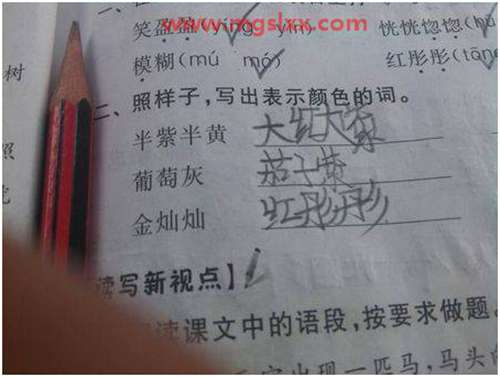 www.mgslxx.com
笑盈盈(yíng yín) 恍恍惚惚(h
模糊(mú mó) 红彤彤(tōn
树
二、照样子,写出表示颜色的词。
半紫半黄 大红大紫
葡萄灰 茄子紫
照
金灿灿 红彤彤
读写新视点】
读课文中的语段,按要求做题。
出现一匹马,马头